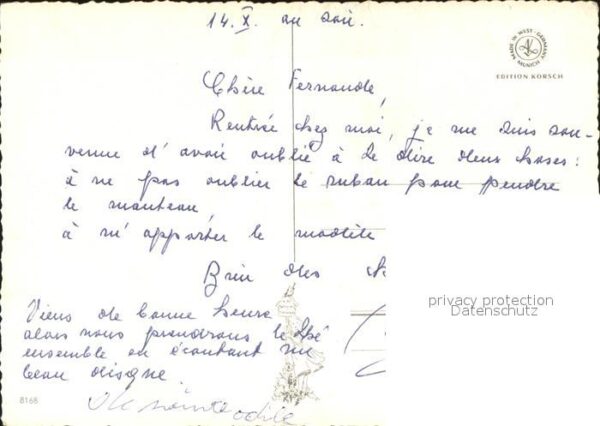 14. X. au soir.
MADE IN WEST-GERMANY MUNICH
EDITION KORSCH
Chère Fernande,
Rentrée chez moi, je me suis sou-
venue d'avoir oublié à te dire deux choses:
à ne pas oublier le ruban pour pendre
le manteau,
à m'apporter le modèle
des
privacy protection
Datenschutz
Viens de bonne heure
alors nous prendrons le thé
ensemble en écoutant un
beau disque
8168